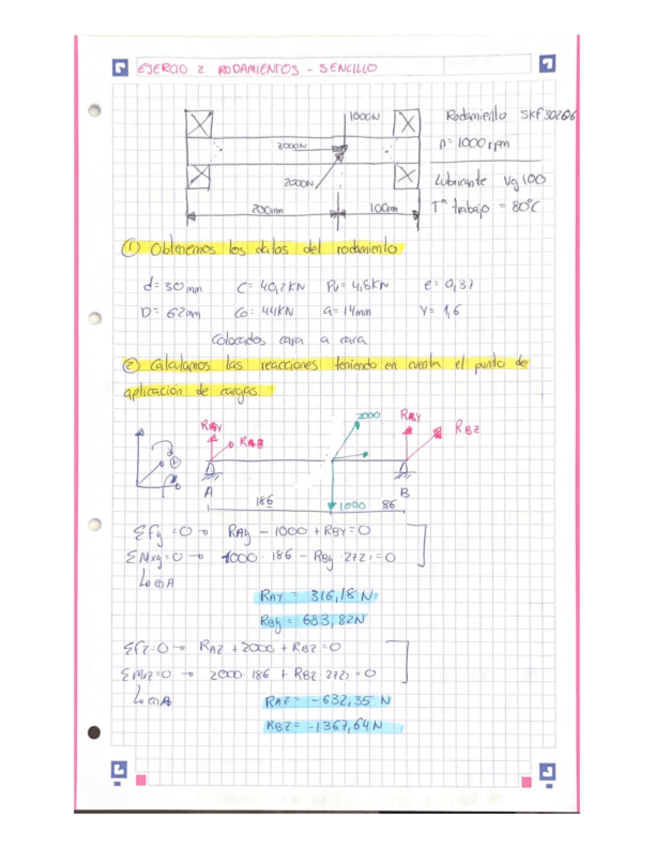 EJERCIO 2 RODAMIENTOS - SENCILLO
1000N
Rodamiento SKF 30206
3000N
n = 1000 rpm
2000N
Lubricante Vg 100
200mm
100mm
Tª trabajo = 80°C
① Obtenemos los datos del rodamiento
d = 30 mm C = 40,2 KN Pu = 4,8 KN e = 0,37
D = 62 mm Co = 44 KN a = 14mm Y = 1,6
Colocados cara a cara
② Calculamos las reacciones teniendo en cuenta el punto de
aplicación de cargas.
2000
RAY
RBY
RBZ
A
B
186
1000
86
ΣFy = 0 → RAy - 1000 + RBY = 0
ΣMxy = 0 → 1000 · 186 - RBy · 272 = 0
↳ en A
RAY = 316,18 N
RBy = 683,82N
ΣFz = 0 → RAZ + 2000 + RBZ = 0
ΣMxz = 0 → 2000 · 186 + RBZ · 272 = 0
↳ en A
RAZ = -632,35 N
RBZ = -1367,64 N